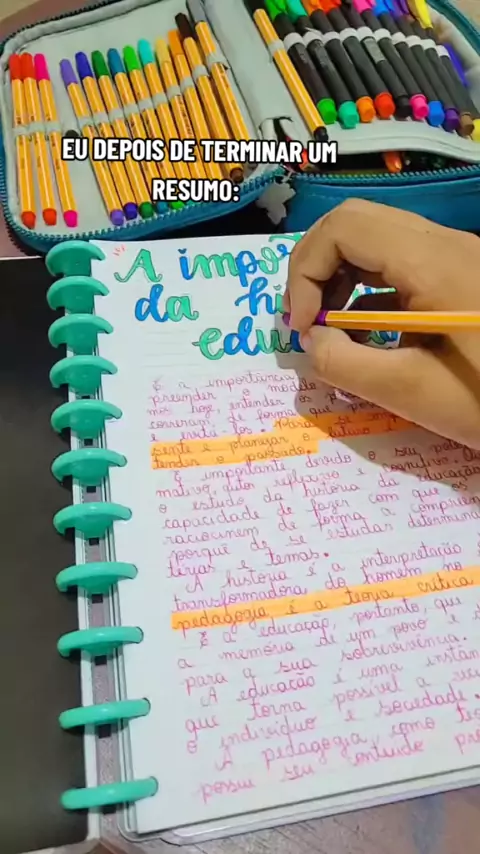 EU DEPOIS DE TERMINAR UM
RESUMO:
A impor
da hi
edu
É a importância
preender o modelo
mos hoje, entender os
correram, de forma que
e evitá-los. Para se
sente e planejar o futuro é
tender o passado.
É importante, devido o seu
mativo, auto reflexivo e cognitivo.
o estudo da história da educação
capacidade de fazer com que os
raciocinem de forma a compreen
porque de se estudar determina
térias e temas.
A história é a interpretação
transformadora do homem no
pedagogia é a teoria crítica
É a educação, portanto, que
a memória de um povo e
para a sua sobrevivência.
A educação é uma instân
que torna possível a
o indivíduo e sociedade.
A pedagogia, como
possui seu conteúdo